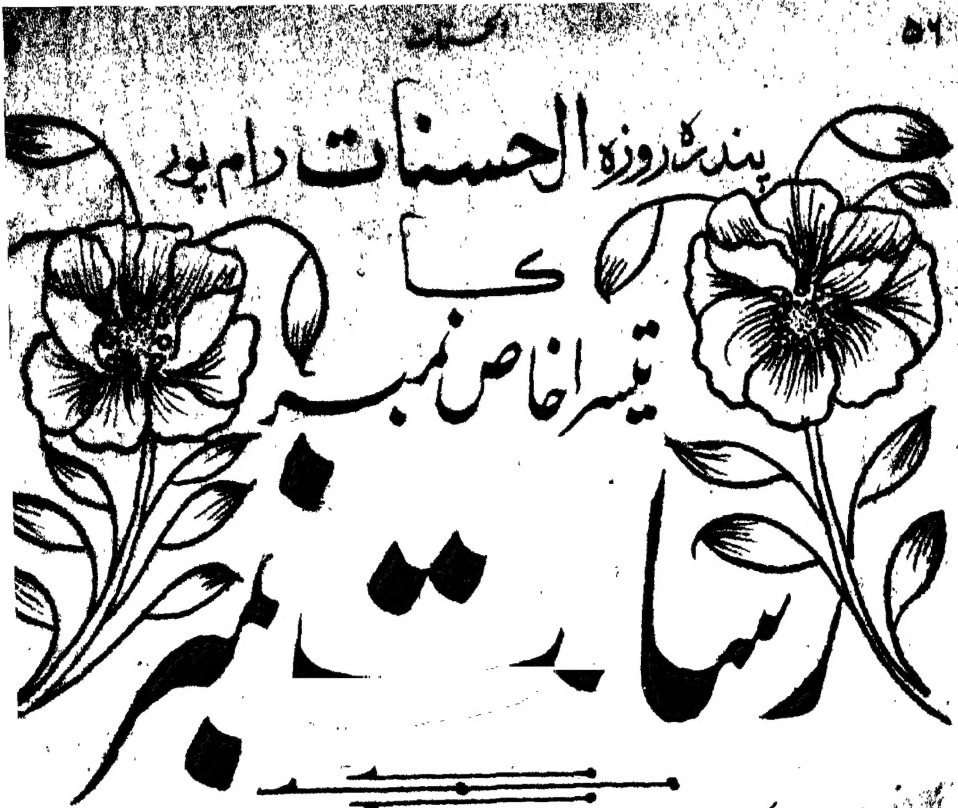 ۵۶
پندرہ روزہ الحسنات رام پور
کا
تیسرا خاص نمبر
رسالت نمبر